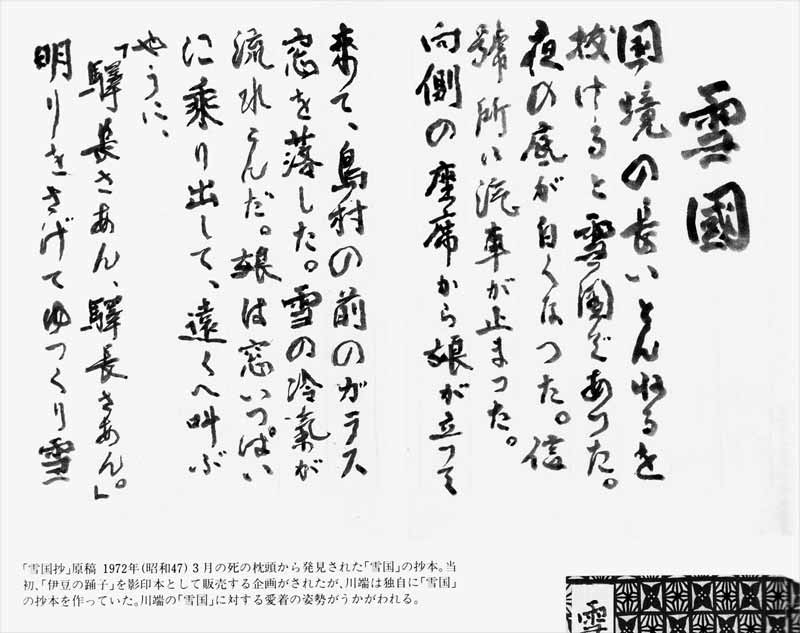 雪國
国境の長いとんねるを
抜けると雪國であつた。
夜の底が白くなつた。信
號所に汽車が止まつた。
向側の座席から娘が立つて
来て、島村の前のガラス
窓を落した。雪の冷氣が
流れこんだ。娘は窓いつぱい
に乗り出して、遠くへ叫ぶ
やうに、
「驛長さあん、驛長さあん。」
明りをさげてゆつくり雪
「雪国抄」原稿 1972年(昭和47) 3月の死の枕頭から発見された「雪国」の抄本。当
初、「伊豆の踊子」を影印本として販売する企画がされたが、川端は独自に「雪国」
の抄本を作っていた。川端の「雪国」に対する愛着の姿勢がうかがわれる。
雪